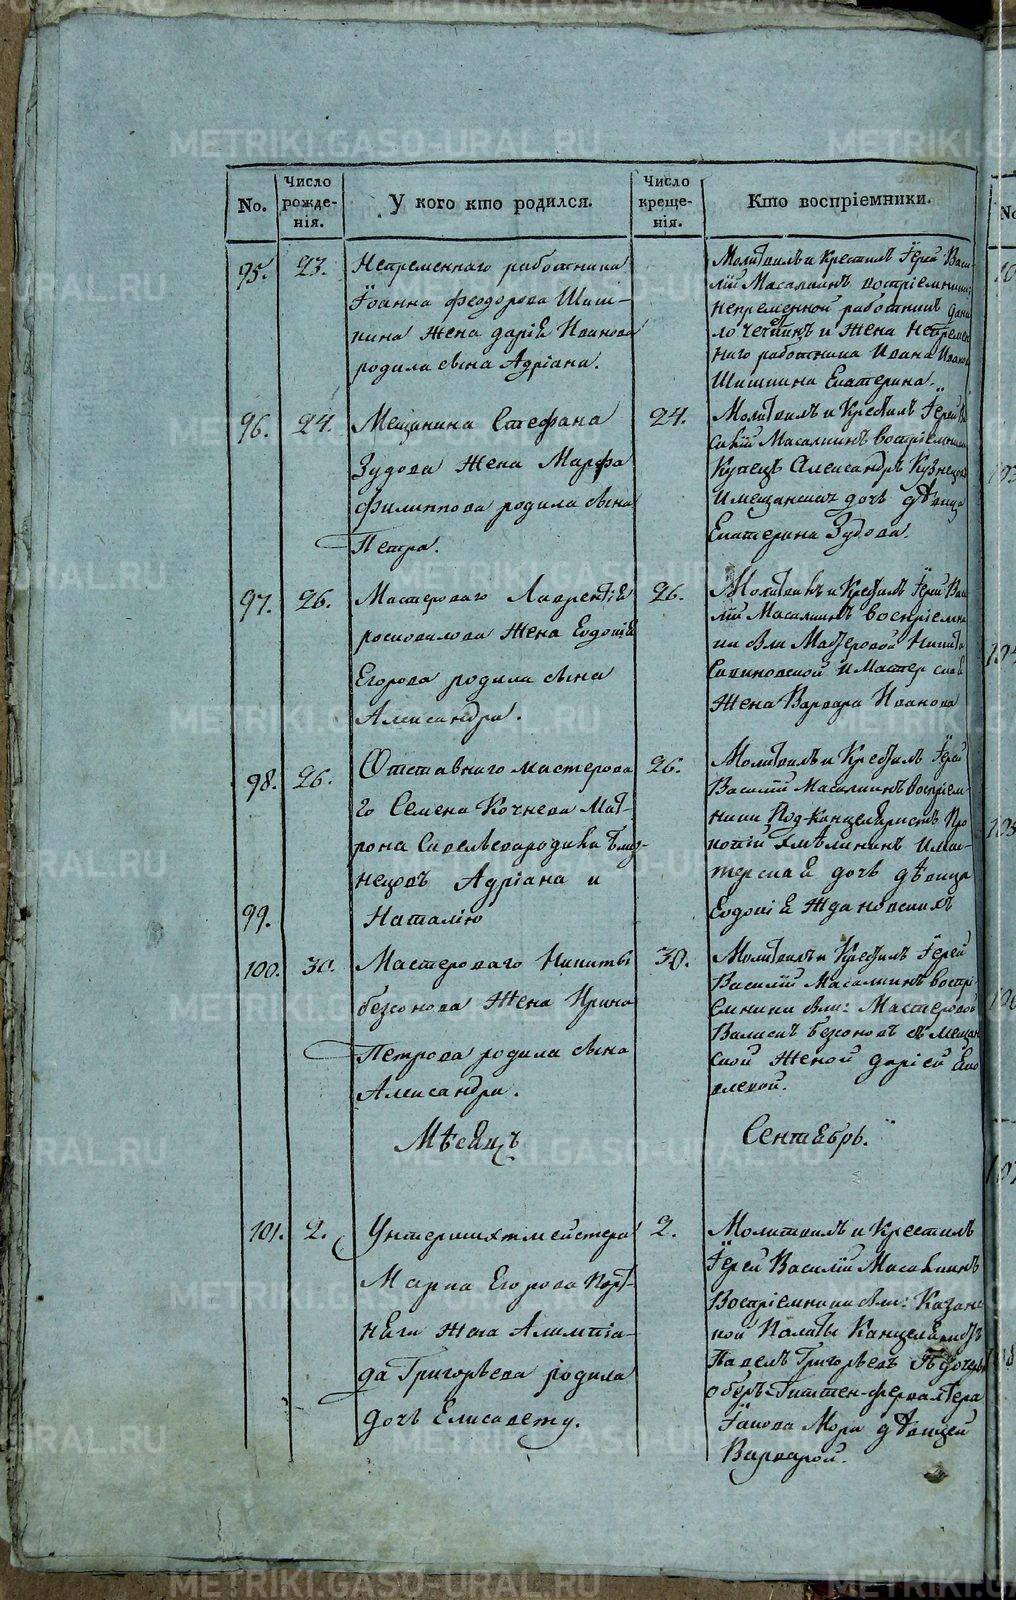 METRIKI.GASO-URAL.RU
No.
Число рожде-
нія.
У кого кто родился.
Число креще-
нія.
Кто воспріемники.
95.
23.
Непременнаго работника
Іоанна Феодорова Шиш-
кина жена Дарія Иванова
родила сына Адріана.
Молитвилъ и крестилъ Іерей Васи-
лій Масалкинъ востріемники:
непременной работникъ Дани-
ло
и жена непремен-
наго работника Ивана Иванова
Шишкина Екатерина.
96.
24.
Мещанина Стефана
Зудова жена Марфа
Филиппова родила сына
Петра.
24.
Молитвилъ и крестилъ Іерей Ва-
силій Масалкинъ воспріемники
Купецъ Александръ Кузнецовъ
и мещанская дочь дѣвица
Екатерина Зудова.
97.
26.
Мастероваго Лаврентія
жена Евдокія
Егорова родила сына
Александра.
26.
Молитвилъ и крестилъ Іерей Васи-
лій Масалкинъ воспріемни-
ки были Мастеровой Никита
и мастерская
жена Варвара Иванова
98.
26.
Отставнаго мастерова-
го Семена Кочнева Мат-
рона Савельева родила близ-
нецовъ Адріана и
99.
Наталію
26.
Молитвилъ и крестилъ Іерей
Василій Масалкинъ воспріем-
ники Под-канцеляристъ Про-
копій Хмѣлининъ и мас-
терская дочь дѣвица
Евдокія Ждановскихъ
100.
30.
Мастероваго Никиты
Безсонова жена Ирина
Петрова родила сына
Александра.
30.
Молитвилъ и крестилъ Іерей
Василій Масалкинъ востріе-
емники были: Мастеровой
Безсоновъ съ мещан-
ской женой Даріей
101.
Мѣсяцъ Сентябрь.
2.
Унтершихтмейстера
Марка Егорова Порт-
няги жена Алимпіа-
да Григорьева родила
дочь Елисавету.
2.
Молитвилъ и крестилъ
Іерей Василій Масалкинъ
Воспріемники были: Казен-
ной Палаты Канцеляристъ
Павелъ Григорьевъ съ дочерью
обер-Гиттен-фервалтера
Іакова Мора дѣвицей
Варварой.